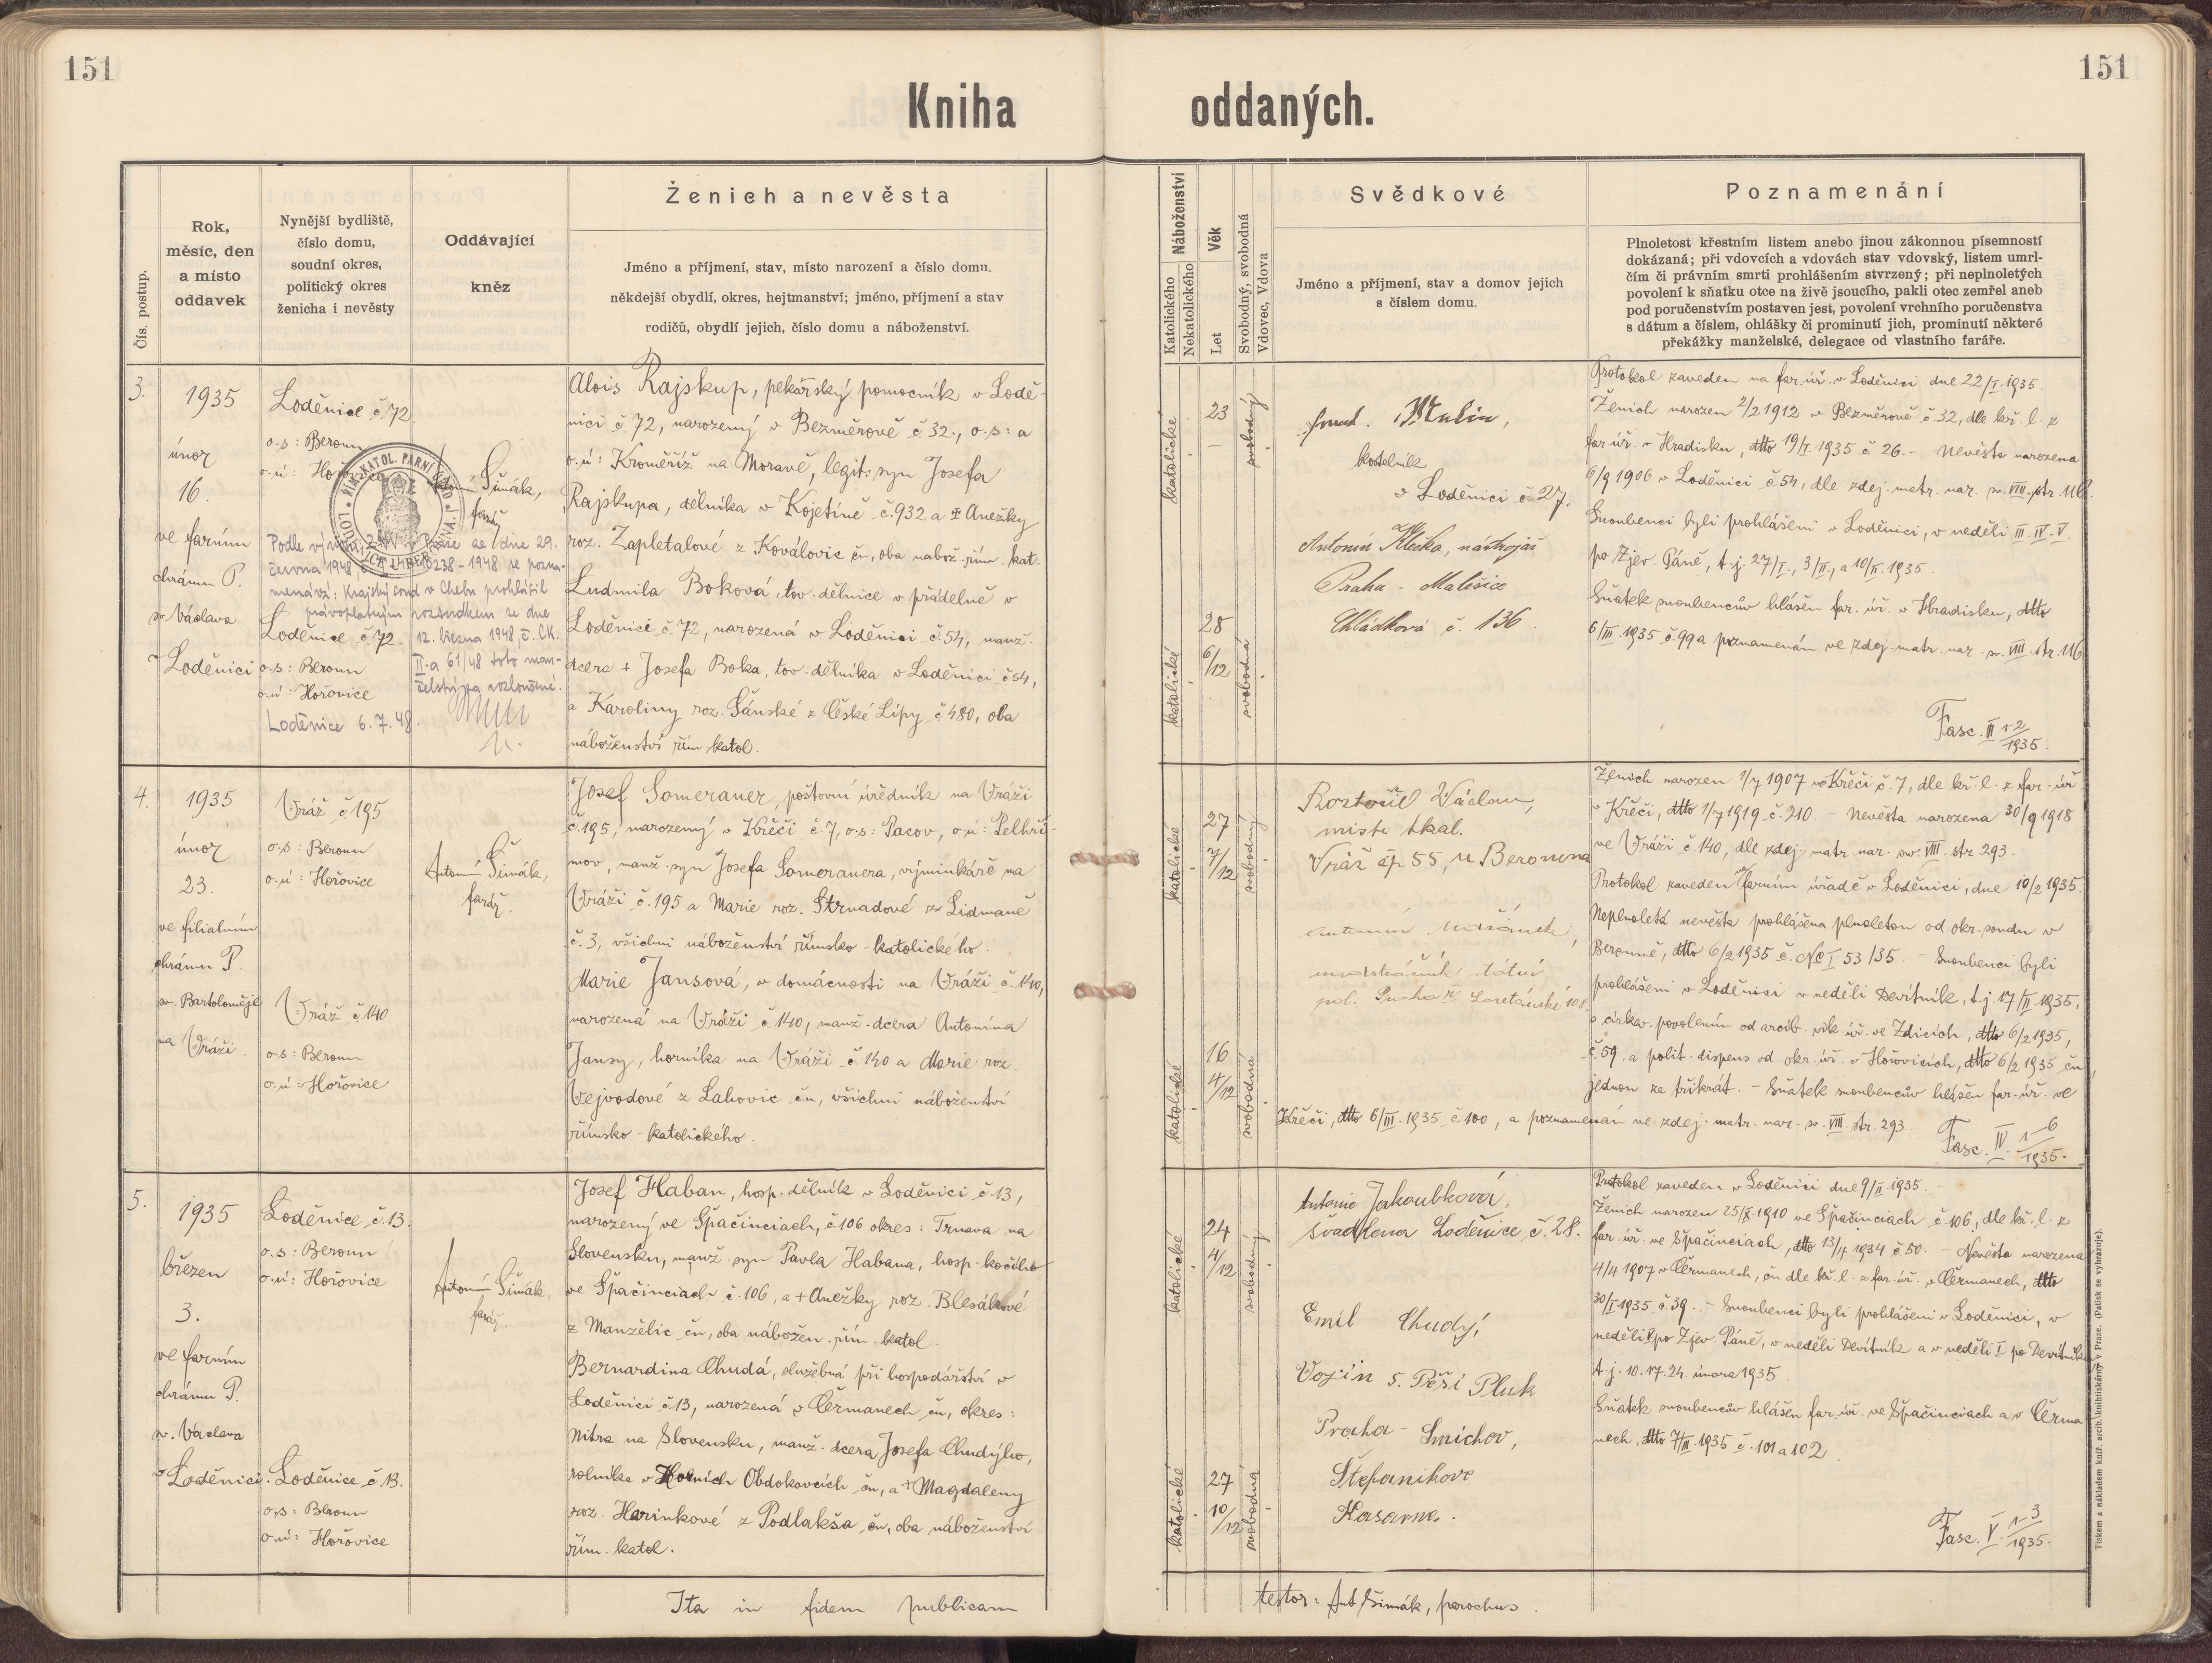 151
151
Kniha oddaných.
Čís. postup.
Rok,
měsíc, den
a místo
oddavek
Nynější bydliště,
číslo domu,
soudní okres,
politický okres
ženicha i nevěsty
Oddávající
kněz
Ženich a nevěsta
Jméno a příjmení, stav, místo narození a číslo domu.
někdejší obydlí, okres, hejtmanství; jméno, příjmení a stav
rodičů, obydlí jejich, číslo domu a náboženství.
Náboženství
Katolického
Nekatolického
Věk
Let
Svobodný, svobodná
Vdovec, Vdova
Svědkové
Jméno a příjmení, stav a domov jejich
s číslem domu.
Poznamenání
Plnoletost křestním listem anebo jinou zákonnou písemností
dokázaná; při vdovcích a vdovách stav vdovský, listem umrl-
čím či právním smrti prohlášením stvrzený; při neplnoletých
povolení k sňatku otce na živě jsoucího, pakli otec zemřel aneb
pod poručenstvím postaven jest, povolení vrchního poručenstva
s dátum a číslem, ohlášky či prominutí jich, prominutí některé
překážky manželské, delegace od vlastního faráře.
3.
1935
únor
16.
ve farním
chrámu P.
sv. Václava
v Loděnici
Loděnice č. 72.
o.s: Beroun
o.ú: Hořovice
Loděnice č. 72.
o.s: Beroun
o.ú: Hořovice
Antonín Šimák,
farář
Podle výnosu ZNV v Praze ze dne 29.
června 1948, č. 238-1948 se pozna-
menává: Krajský soud v Chebu prohlásil
pravoplatným rozsudkem ze dne
12. března 1948, č. CK.
II.a 61/48 toto man-
želství za rozloučené.
Loděnice 6.7.48.
Alois Rajskup, pekařský pomocník v Lodě-
nici č. 72, narozený v Bezměrově č. 32., o.s: a
o.ú: Kroměříž na Moravě, legit. syn Josefa
Rajskupa, dělníka v Kojetíně č. 932 a + Anežky
roz. Zapletalové z Kovalovic čn, oba nábož. řím. kat.
Ludmila Boková, tov. dělnice v přádelně v
Loděnici č. 72, narozená v Loděnici č. 54, manž.
dcera + Josefa Boka, tov. dělníka v Loděnici č. 54,
a Karoliny roz. Šánské z České Lípy č. 480, oba
náboženství řím. katol.
katolické
23
svobodný
katolické
28
6/12
svobodná
kostelník
v Loděnici č. 27.
Antonín, nástrojař
Praha - Malešice
Chládkova č. 136
Protokol zaveden na far. úř. v Loděnici dne 22/I. 1935.
Ženich narozen 2/2 1912 v Bezměrově č. 32, dle kř. l. z
far. úř. v Hradisku, dtto 19/I. 1935 č. 26. - Nevěsta narozena
6/9 1906 v Loděnici č. 54, dle zdej. matr. nar. sv. VIII. str. 116.
Snoubenci byli prohlášeni v Loděnici, v neděli III. IV. V.
po Zjev. Páně, t.j. 27/I., 3/II., a 10/II. 1935.
Sňatek snoubencův hlášen far. úř. v Hradisku, dtto
6/III. 1935 č. 99 a poznamenán ve zdej. matr. nar. sv. VIII. str. 116
Fasc. III 1-2/1935.
4.
1935
únor
23.
ve filialním
chrámu P.
sv. Bartoloměje
na Vráži.
Vráž č. 195
o.s: Beroun
o.ú: Hořovice
Vráž č. 140
o.s: Beroun
o.ú: Hořovice
Antonín Šimák,
farář.
Josef Someraner, poštovní úředník na Vráži
č. 195, narozený v Křeči č. 7, o.s: Pacov, o.ú: Pelhři-
mov, manž. syn Josefa Someranera, výminkáře na
Vráži č. 195 a Marie roz. Strnadové z Lidmaně
č. 3, všichni náboženství římsko-katolického.
Marie Jansová, v domácnosti na Vráži č. 140,
narozená na Vráži č. 140, manž. dcera Antonína
Jansy, horníka na Vráži č. 140 a Marie roz.
Vejvodové z Lahovic čn, všichni náboženství
římsko-katolického.
katolické
27
7/12
svobodný
katolické
16
4/12
svobodná
Václav,
mistr tkal.
Vráž čp 55, u Berouna
Antonín
Ženich narozen 1/7 1907 v Křeči č. 7, dle kř. l. z far. úř.
v Křeči, dtto 1/7 1919 č. 210. - Nevěsta narozena 30/9 1918
ve Vráži č. 140, dle zdej. matr. nar. sv. VIII. str. 293.
Protokol zaveden ve farním úřadě v Loděnici, dne 10/2 1935.
Neplnoletá nevěsta prohlášena plnoletou od okr. soudu v
Berouně, dtto 6/2 1935 č. Nc I 53/35. - Snoubenci byli
prohlášeni v Loděnici v neděli Devítník, t.j. 17/II. 1935,
s církev. povolením od arcib. vik. úř. ve Zdicích, dtto 6/2 1935,
č. 59. a polit. dispens od okr. úř. v Hořovicích, dtto 6/2 1935 čn,
jednou za třikrát. - Sňatek snoubencův hlášen far. úř. ve
Křeči, dtto 6/III. 1935 č. 100, a poznamenán ve zdej. matr. nar. sv. VIII. str. 293.
Fasc. IV. 1-6/1935.
5.
1935
březen
3.
ve farním
chrámu P.
sv. Václava
v Loděnici.
Loděnice č. 13.
o.s: Beroun
o.ú: Hořovice
Loděnice č. 13.
o.s: Beroun
o.ú: Hořovice
Antonín Šimák,
farář.
Josef Haban, hosp. dělník v Loděnici č. 13,
narozený ve Špačinciach, č. 106 okres: Trnava na
Slovensku, manž. syn Pavla Habana, hosp. kočího
ve Špačinciach č. 106, a + Anežky roz. Blesákové
z Manželic čn, oba nábožen. řím. katol.
Bernardina Chudá, služebná při hospodářství v
Loděnici č. 13, narozená v Čermanech čn, okres:
Nitra na Slovensku, manž. dcera Josefa Chudýho,
rolníka v Horních Obdokovcích čn, a + Magdaleny
roz. Harinkové z Podlakša čn, oba náboženství
řím. katol.
katolické
24
4/12
svobodný
katolické
27
10/12
svobodná
Antonie Jakoubková,
švadlena Loděnice č. 28.
Emil Chudý,
Vojín 5. Pěší Pluk
Praha - Smíchov,
Štefanikove
Kasarne.
Protokol zaveden v Loděnici dne 9/II. 1935.
Ženich narozen 25/X. 1910 ve Špačinciach č. 106, dle kř. l. z
far. úř. ve Špačinciach, dtto 13/4 1934 č. 50. - Nevěsta narozena
4/4 1907 v Čermanech, čn dle kř. l. z far. úř. v Čermanech, dtto
30/I. 1935 č. 39. - Snoubenci byli prohlášeni v Loděnici, v
neděli V. po Zjev. Páně, v neděli Devítník a v neděli I. po Devítníku
t.j. 10. 17. 24. února 1935.
Sňatek snoubencův hlášen far. úř. ve Špačinciach a v Čerma-
nech, dtto 7/III. 1935 č. 101 a 102.
Fasc. V. 1-3/1935.
Ita in fidem publicam
testor: Ant Šimák, parochus.
Tiskem a nákladem kníž. arcib. knihtiskárny v Praze. (Patisk se vyhrazuje).